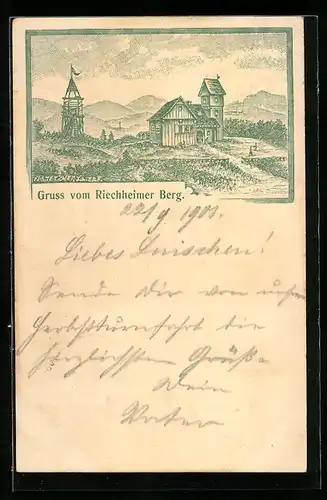 Gruss vom Riechheimer Berg.
22/9 1901.
Liebes Luischen!
Sende Dir von unsrer
Herbstturnfahrt die
herzlichsten Grüße
Dein
Vater